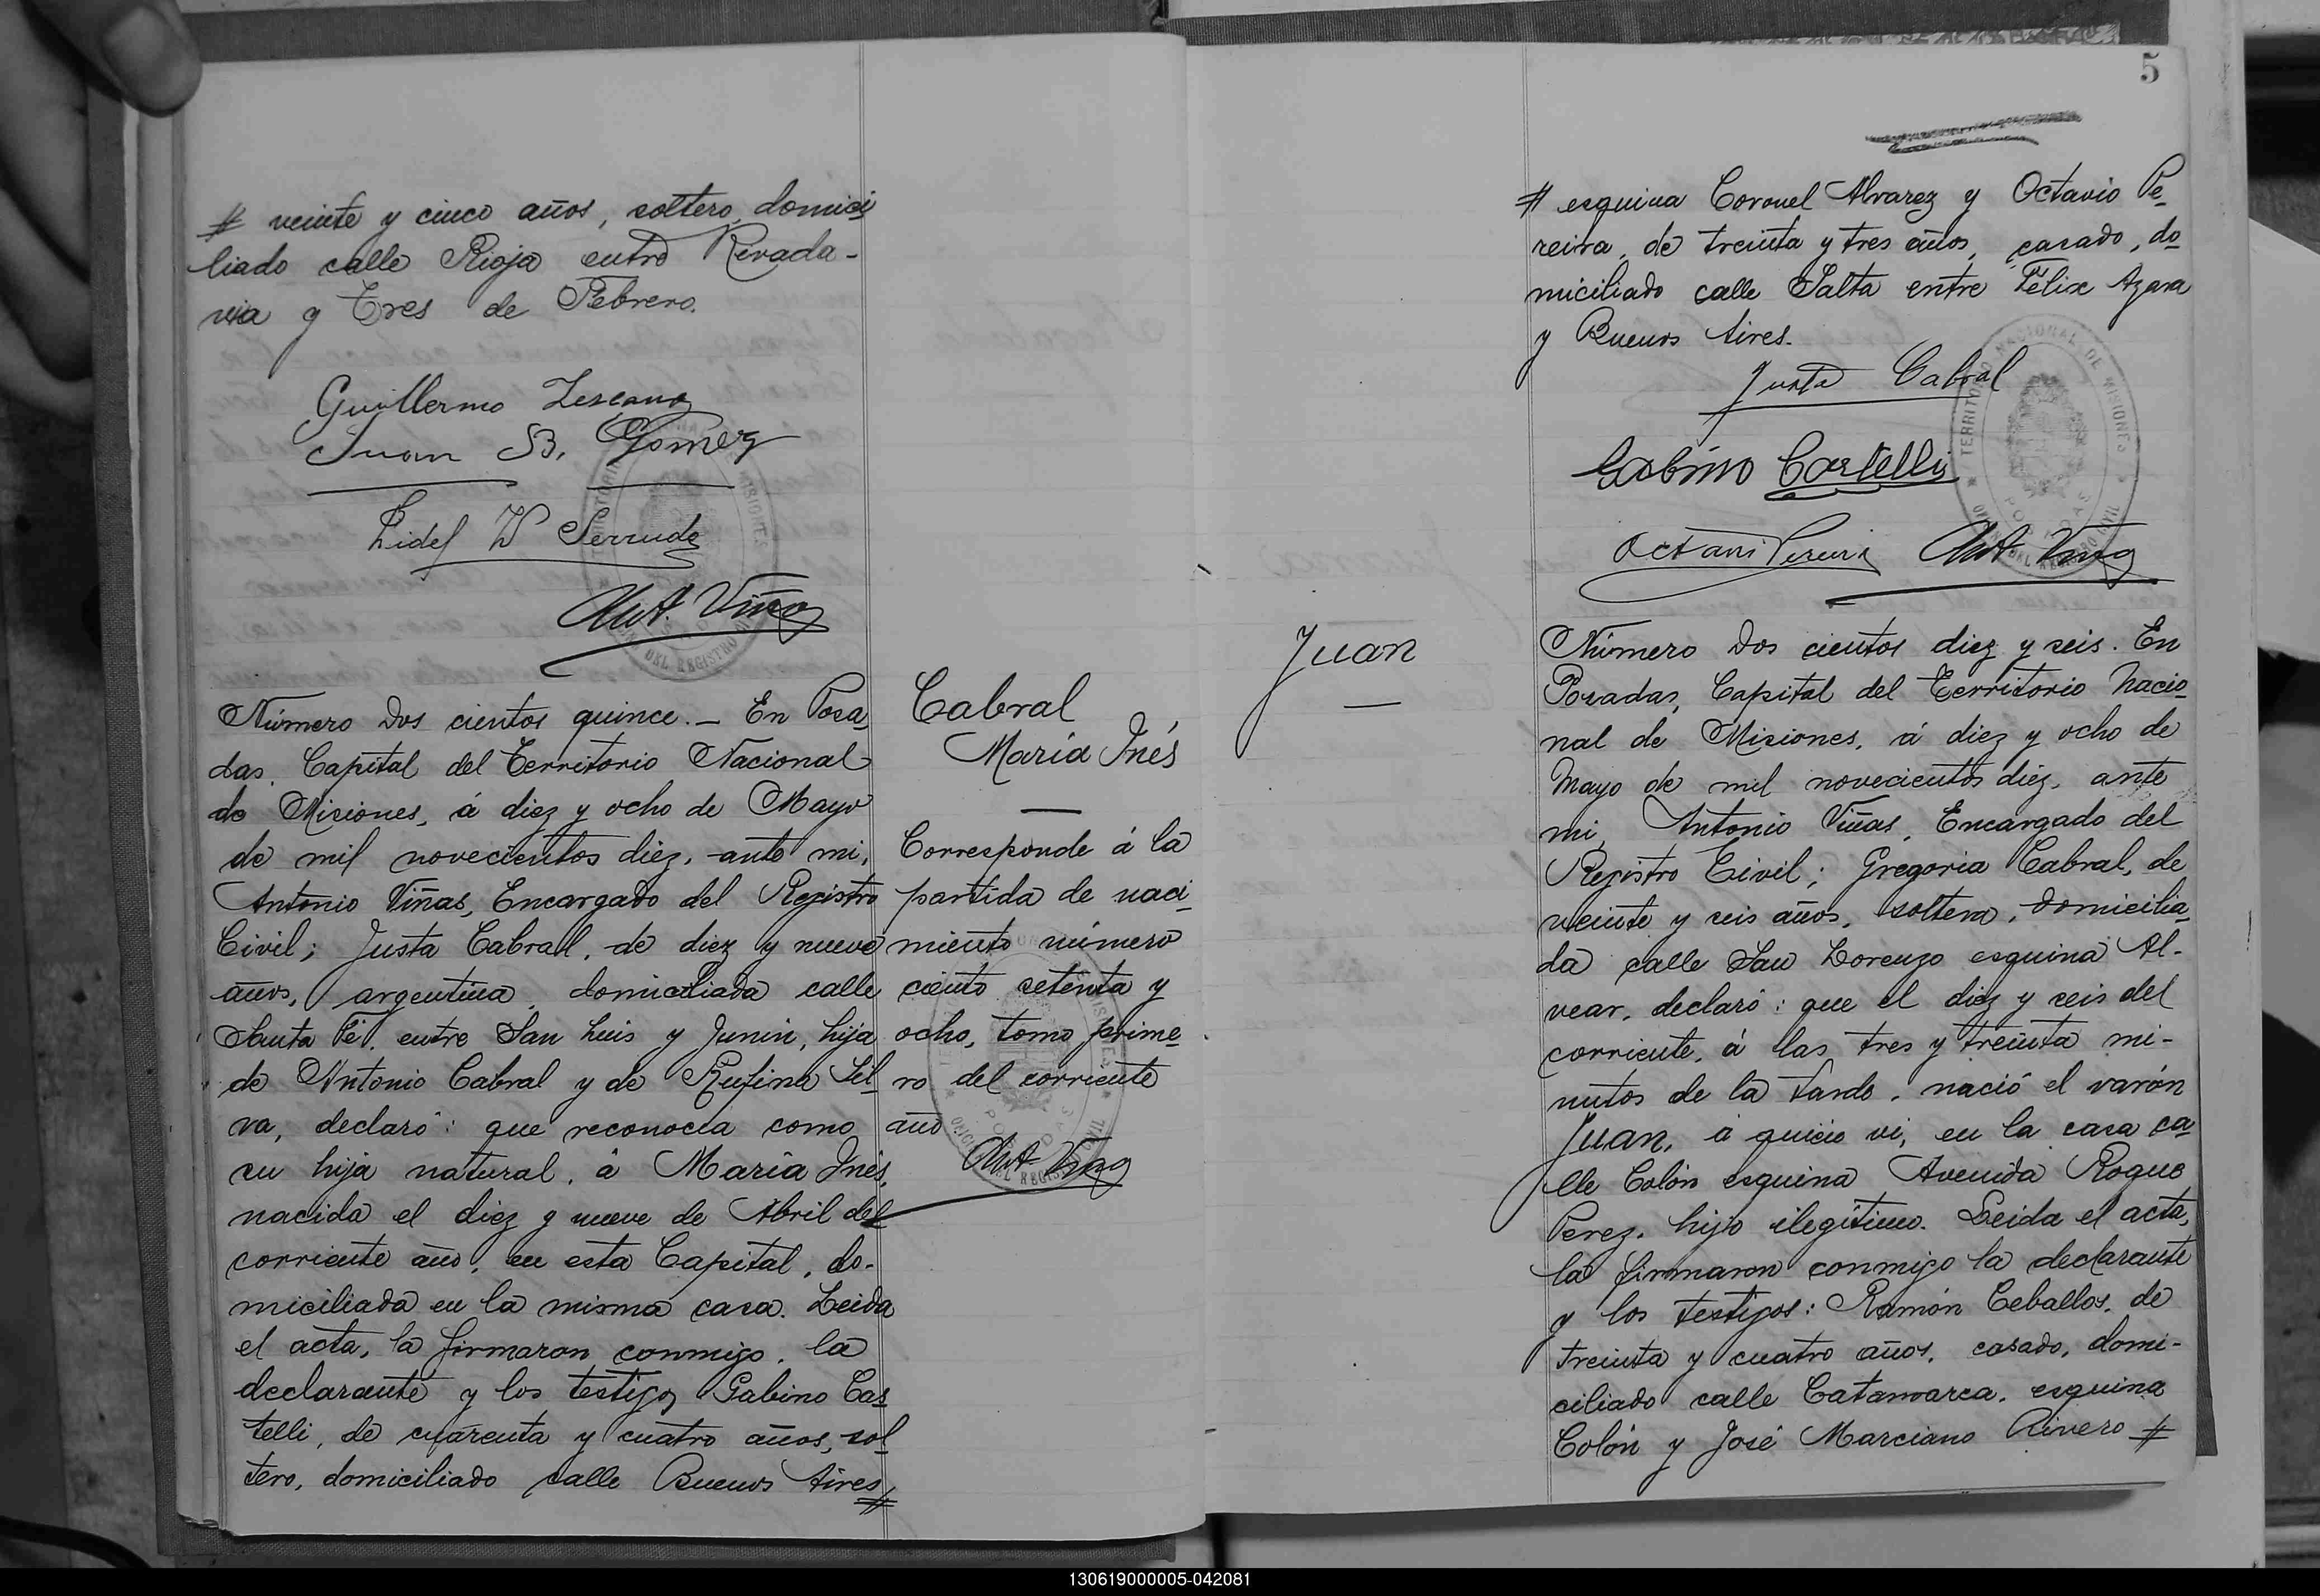 # veinte y cinco años, soltero, domici
liado calle Rioja entre Rivada-
via y Tres de Febrero.
Guillermo Lescano
Juan B. Gomez
Fidel W Serrudo
Ant. Viñas
Número Dos cientos quince.- En Posa
das, Capital del Territorio Nacional
de Misiones, á diez y ocho de Mayo
de mil novecientos diéz, ante mi,
Antonio Viñas, Encargado del Registro
Civil; Justa Cabral, de diez y nueve
años, argentina, domiciliada calle
Santa Fé, entre San Luis y Junin, hija
de Antonio Cabral y de Rufina Sil
va, declaró: que reconocía como
su hija natural, á María Inés,
nacida el diez y nueve de Abril del
corriente año, en esta Capital, do-
miciliada en la misma casa. Leida
el acta, la firmaron conmigo, la
declarante y los testigos Gabino Cas
telli, de cuarenta y cuatro años, sol
tero, domiciliado calle Buenos Aires #
Cabral
María Inés
Corresponde á la
partida de naci
miento número
ciento setenta y
ocho, tomo prime
ro del corriente
año
Ant. Viñas
5
# esquina Coronel Alvarez y Octavio Pe-
reira, de treinta y tres años, casado, do
miciliado calle Salta entre Félix Azara
y Buenos Aires.
Justa Cabral
Gabino Castelli
Octavi Pereira Ant. Viñas
TERRITORIO NACIONAL DE MISIONES
POSADAS
OFICINA DEL REGISTRO CIVIL
Juan
Número Dos cientos diez y seis. En
Posadas, Capital del Territorio Nacio
nal de Misiones, á diez y ocho de
Mayo de mil novecientos diéz, ante
mi, Antonio Viñas, Encargado del
Registro Civil; Gregoria Cabral, de
veinte y seis años, soltera, domicilia
da calle San Lorenzo esquina Al-
vear, declaró: que el diez y seis del
corriente, á las tres y treinta mi-
nutos de la tarde, nació el varón
Juan, á quien vi, en la casa ca
lle Colón esquina Avenida Roque
Perez, hijo ilegítimo. Leida el acta,
la firmaron conmigo la declarante
y los testigos: Ramón Ceballos, de
treinta y cuatro años, casado, domi-
ciliado calle Catamarca, esquina
Colón y José Marciano Rivero #
130619000005-042081